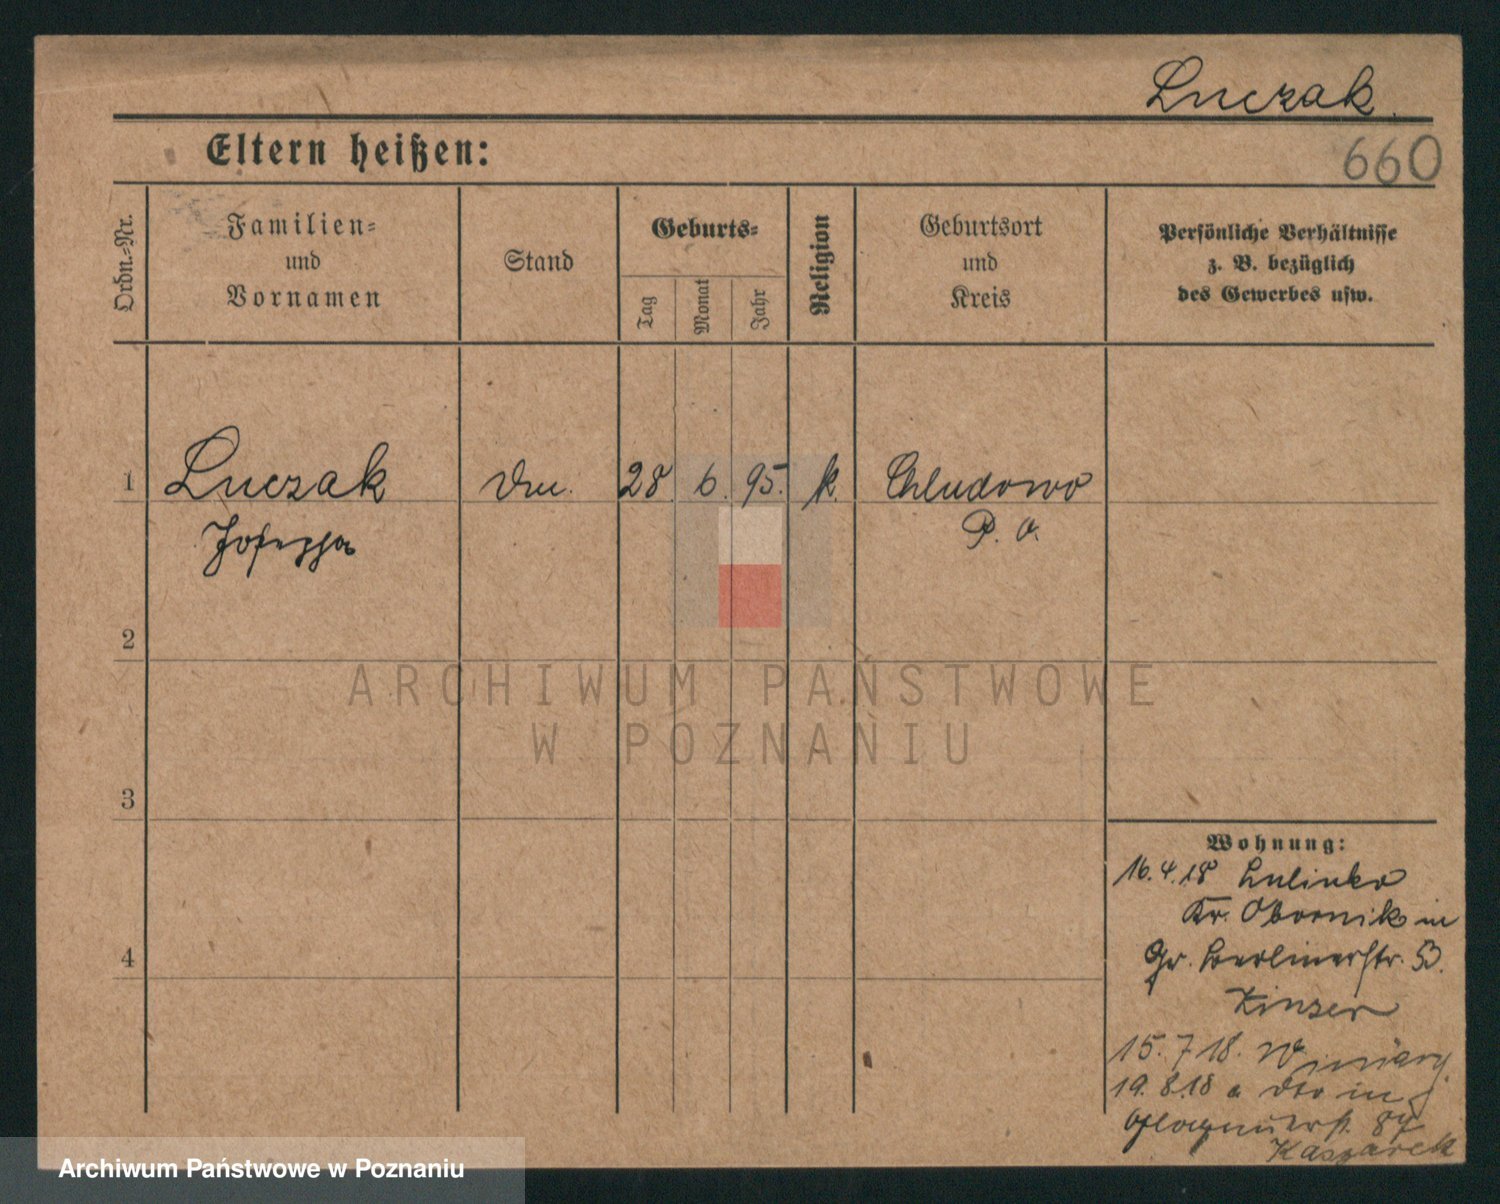 Luczak.
660
Eltern heißen:
Ordn.-Nr.
Familien-
und
Vornamen
Stand
Geburts-
Tag
Monat
Jahr
Religion
Geburtsort
und
Kreis
Persönliche Verhältnisse
z. B. bezüglich
des Gewerbes usw.
1
Luczak
Josepha
28. 6. 95. k.
Chludowo
P. O.
2
3
4
Wohnung:
16.4.18 Lulinko
Kr. Obornik in
Gr. Berlinerstr. 53.
Kinzer
15. 7 18. Winiary
19. 8.18 a dto in
87
Kaszarek
ARCHIWUM PAŃSTWOWE
W POZNANIU
Archiwum Państwowe w Poznaniu